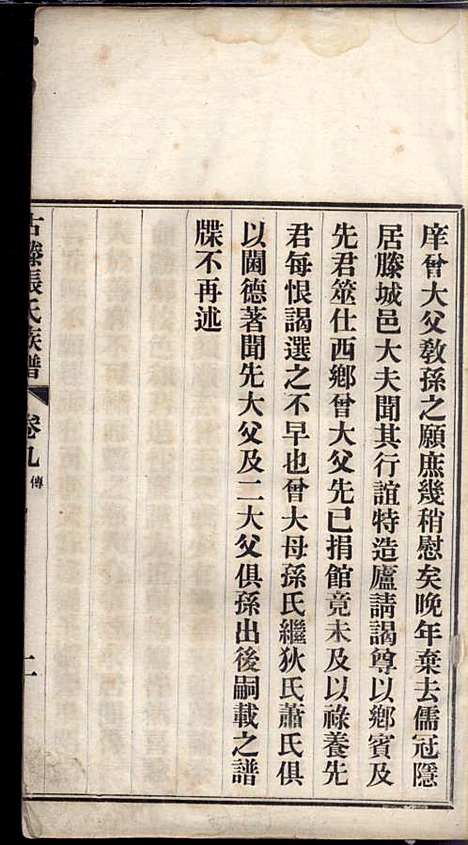 庠曾大父敎孫之願庶幾稍慰矣晚年棄去儒冠隱
居滕城邑大夫聞其行誼特造廬請謁尊以鄉賓及
先君筮仕西鄉曾大父先已捐館竟未及以祿養先
君每恨謁選之不早也曾大母孫氏繼狄氏蕭氏俱
以閫德著聞先大父及二大父俱孫出後嗣載之譜
牒不再述
古滕張氏族譜 卷九 傳 二